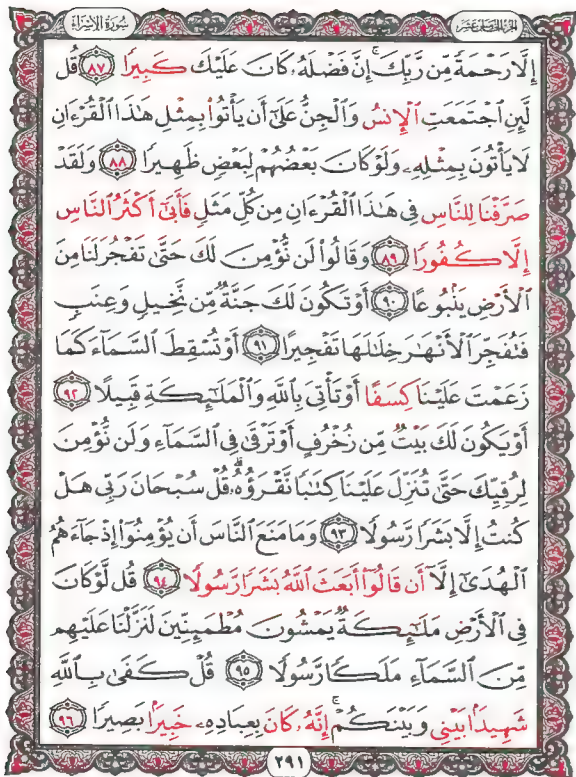 سُورَةُ الإِسْرَاءِ
الجُزْءُ الخَامِسَ عَشَرَ
إِلَّا رَحْمَةً مِّن رَّبِّكَ ۚ إِنَّ فَضْلَهُۥ كَانَ عَلَيْكَ كَبِيرًا ٨٧ قُل
لَّئِنِ ٱجْتَمَعَتِ ٱلْإِنسُ وَٱلْجِنُّ عَلَىٰٓ أَن يَأْتُوا۟ بِمِثْلِ هَٰذَا ٱلْقُرْءَانِ
لَا يَأْتُونَ بِمِثْلِهِۦ وَلَوْ كَانَ بَعْضُهُمْ لِبَعْضٍ ظَهِيرًا ٨٨ وَلَقَدْ
صَرَّفْنَا لِلنَّاسِ فِى هَٰذَا ٱلْقُرْءَانِ مِن كُلِّ مَثَلٍ فَأَبَىٰٓ أَكْثَرُ ٱلنَّاسِ
إِلَّا كُفُورًا ٨٩ وَقَالُوا۟ لَن نُّؤْمِنَ لَكَ حَتَّىٰ تَفْجُرَ لَنَا مِنَ
ٱلْأَرْضِ يَنۢبُوعًا ٩٠ أَوْ تَكُونَ لَكَ جَنَّةٌ مِّن نَّخِيلٍ وَعِنَبٍ
فَتُفَجِّرَ ٱلْأَنْهَٰرَ خِلَٰلَهَا تَفْجِيرًا ٩١ أَوْ تُسْقِطَ ٱلسَّمَآءَ كَمَا
زَعَمْتَ عَلَيْنَا كِسَفًا أَوْ تَأْتِىَ بِٱللَّهِ وَٱلْمَلَٰٓئِكَةِ قَبِيلًا ٩٢
أَوْ يَكُونَ لَكَ بَيْتٌ مِّن زُخْرُفٍ أَوْ تَرْقَىٰ فِى ٱلسَّمَآءِ وَلَن نُّؤْمِنَ
لِرُقِيِّكَ حَتَّىٰ تُنَزِّلَ عَلَيْنَا كِتَٰبًا نَّقْرَؤُهُۥ ۗ قُلْ سُبْحَانَ رَبِّى هَلْ
كُنتُ إِلَّا بَشَرًا رَّسُولًا ٩٣ وَمَا مَنَعَ ٱلنَّاسَ أَن يُؤْمِنُوٓا۟ إِذْ جَآءَهُمُ
ٱلْهُدَىٰٓ إِلَّآ أَن قَالُوٓا۟ أَبَعَثَ ٱللَّهُ بَشَرًا رَّسُولًا ٩٤ قُل لَّوْ كَانَ
فِى ٱلْأَرْضِ مَلَٰٓئِكَةٌ يَمْشُونَ مُطْمَئِنِّينَ لَنَزَّلْنَا عَلَيْهِم
مِّنَ ٱلسَّمَآءِ مَلَكًا رَّسُولًا ٩٥ قُلْ كَفَىٰ بِٱللَّهِ
شَهِيدًۢا بَيْنِى وَبَيْنَكُمْ ۚ إِنَّهُۥ كَانَ بِعِبَادِهِۦ خَبِيرًۢا بَصِيرًا ٩٦
٢٩١